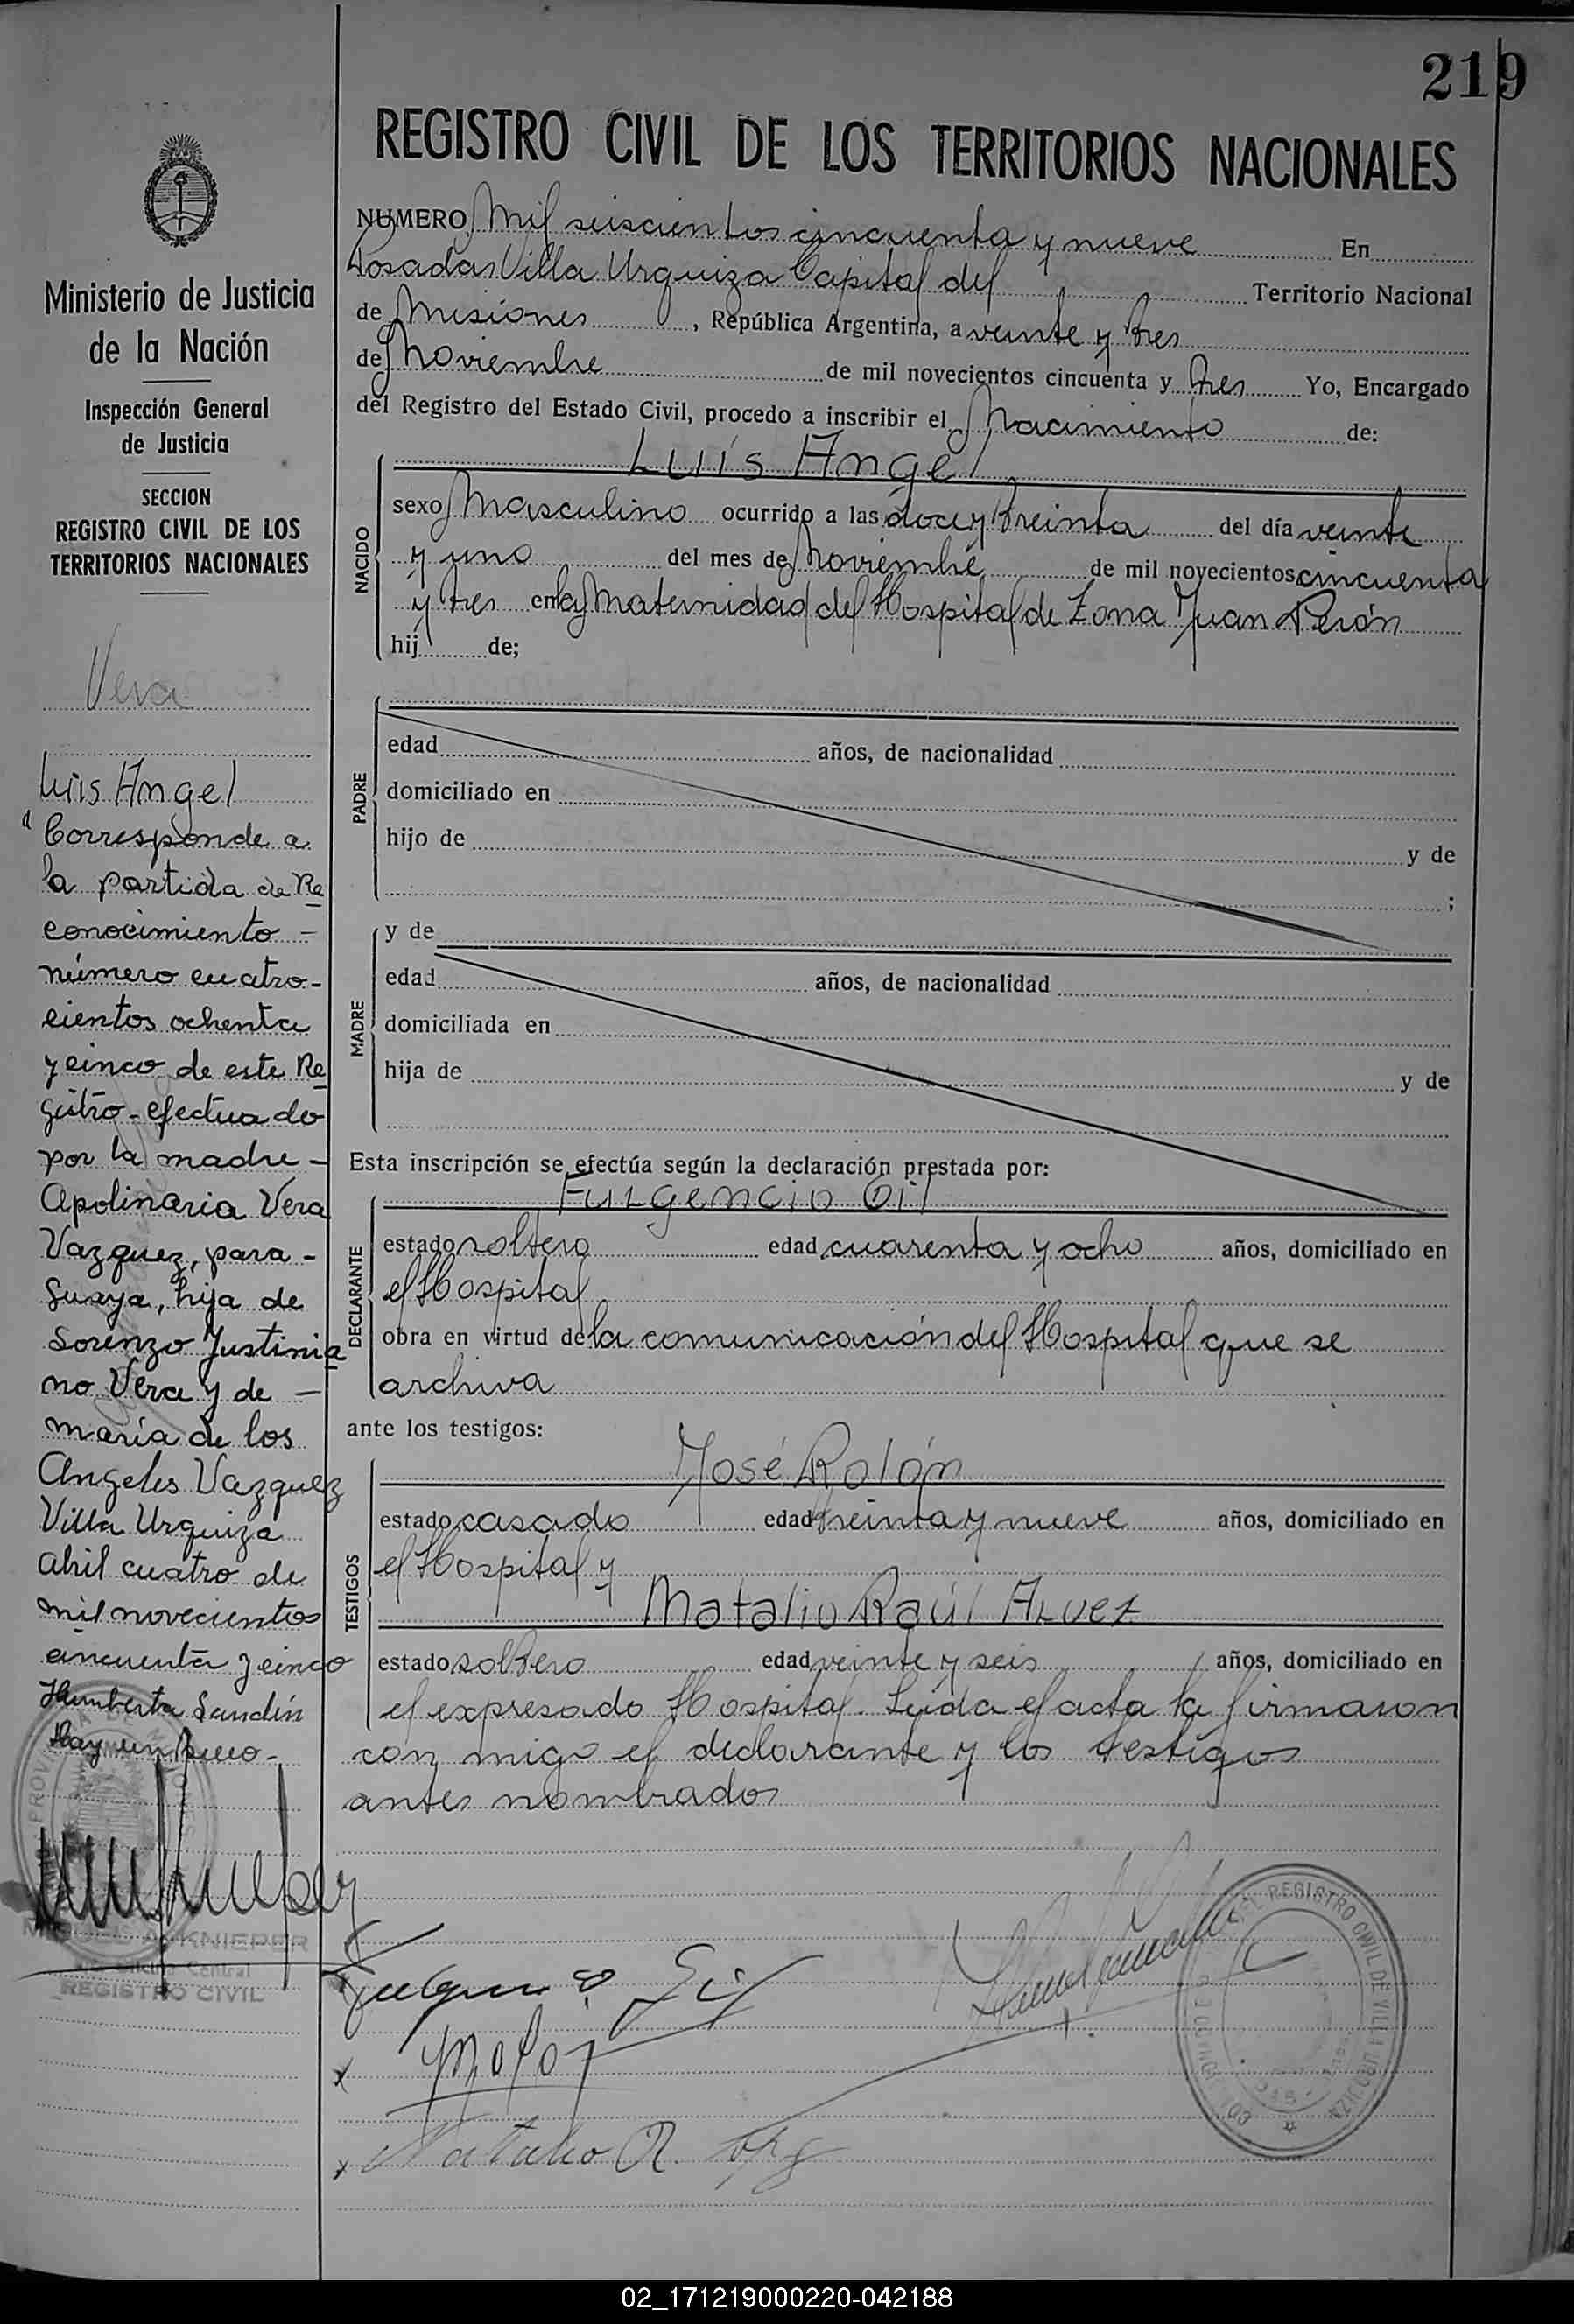 219
REGISTRO CIVIL DE LOS TERRITORIOS NACIONALES
NUMERO Mil seiscientos cincuenta y nueve En
Posadas Villa Urquiza Capital del Territorio Nacional
de Misiones, República Argentina, a veinte y tres
de Noviembre de mil novecientos cincuenta y tres Yo, Encargado
del Registro del Estado Civil, procedo a inscribir el Nacimiento de:
Luis Angel
NACIDO
sexo Masculino ocurrido a las doce y treinta del día veinte
y uno del mes de Noviembre de mil novecientos cincuenta
y tres en la Maternidad del Hospital de Zona Juan Perón
hij de;
PADRE
edad años, de nacionalidad
domiciliado en
hijo de y de
;
MADRE
y de
edad años, de nacionalidad
domiciliada en
hija de y de
Esta inscripción se efectúa según la declaración prestada por:
Fulgencio Gil
DECLARANTE
estado soltero edad cuarenta y ocho años, domiciliado en
el Hospital
obra en virtud de la comunicación del Hospital que se
archiva
ante los testigos:
José Rolón
TESTIGOS
estado casado edad treinta y nueve años, domiciliado en
el Hospital y
Natalio Raúl Alvez
estado soltero edad veinte y seis años, domiciliado en
el expresado Hospital. Leida el acta la firmaron
con migo el declarante y los testigos
antes nombrados
Ministerio de Justicia
de la Nación
Inspección General
de Justicia
SECCION
REGISTRO CIVIL DE LOS
TERRITORIOS NACIONALES
Vera
Luis Angel
Corresponde a
la partida de Re
conocimiento -
número cuatro-
cientos ochenta
y cinco de este Re
gistro - efectuado
por la madre -
Apolinaria Vera
Vazquez, para -
guaya, hija de
Lorenzo Justinia
no Vera y de -
maría de los
Angeles Vazquez
Villa Urquiza
abril cuatro de
mil novecientos
cincuenta y cinco
Humberto Sandin
Hay un sello -
KNIEPER
Oficina Central
REGISTRO CIVIL
Fulgencio Gil
Natalio R.
DEL REGISTRO CIVIL DE VILLA URQUIZA
02_171219000220-042188